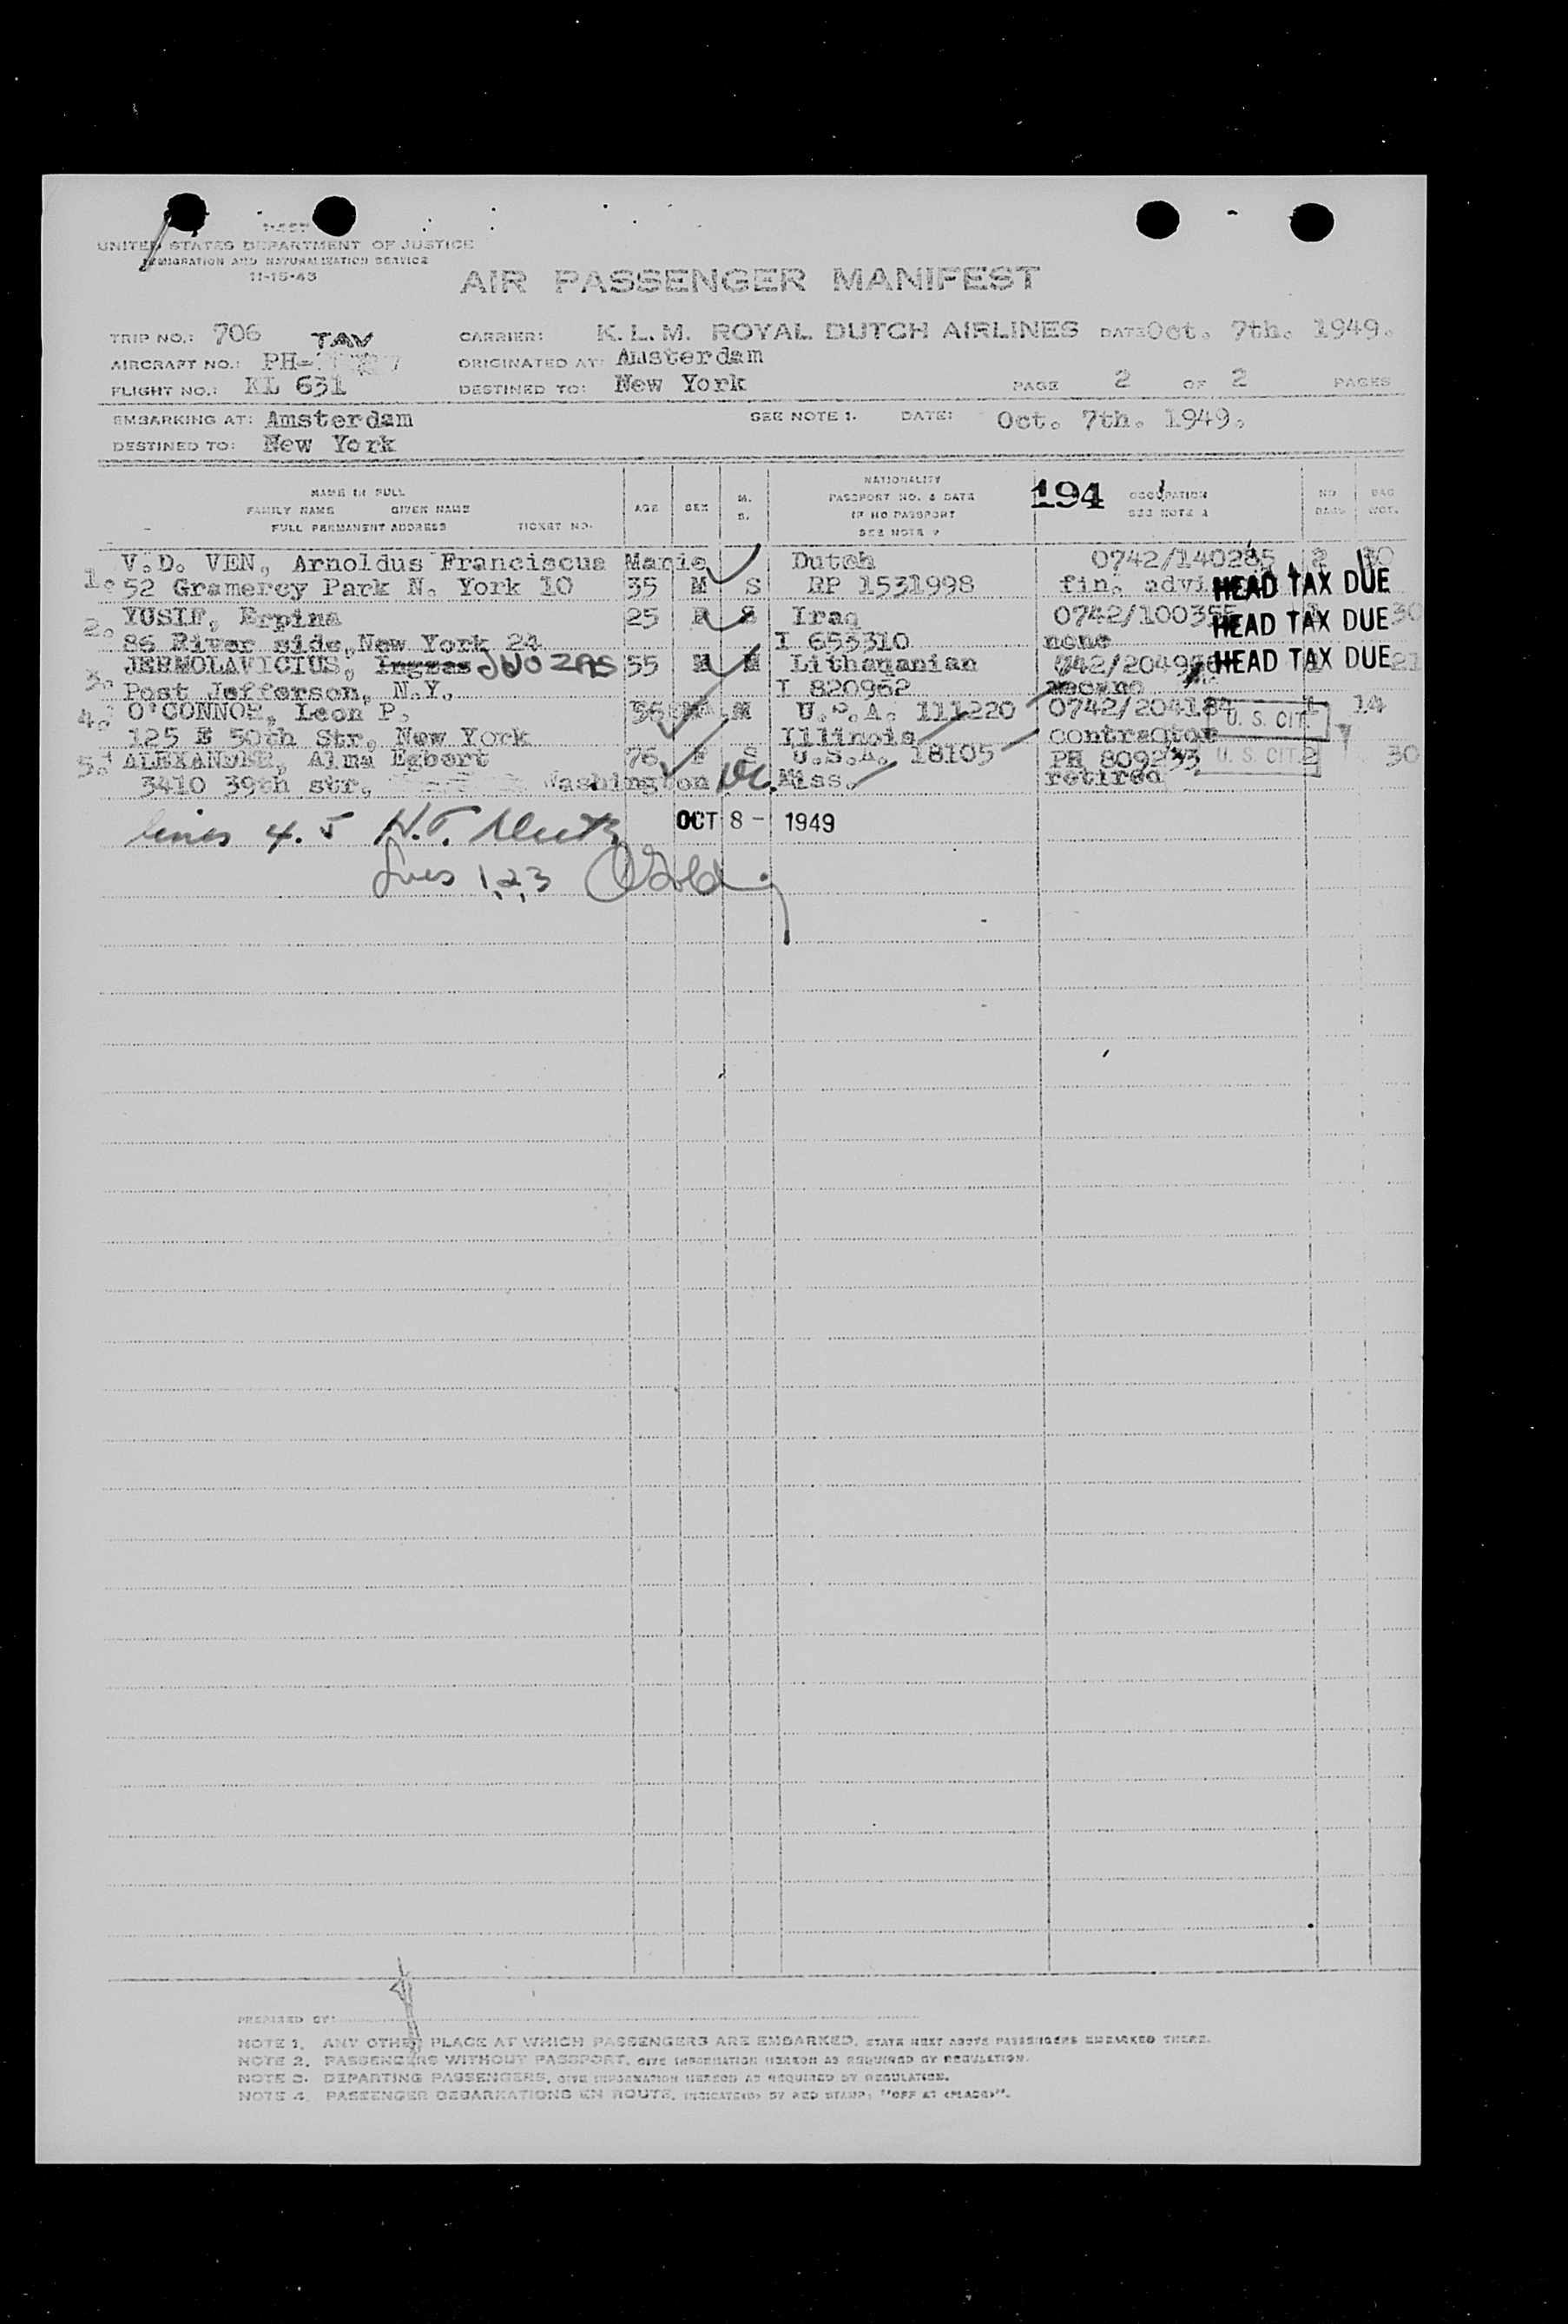 UNITED STATES DEPARTMENT OF JUSTICE
IMMIGRATION AND NATURALIZATION SERVICE
11-15-43
AIR PASSENGER MANIFEST
TRIP NO.: 706 TAV CARRIER: K.L.M. ROYAL DUTCH AIRLINES DATE Oct. 7th. 1949.
AIRCRAFT NO.: PH- ORIGINATED AT: Amsterdam
FLIGHT NO.: KL 631 DESTINED TO: New York PAGE 2 OF 2 PAGES
EMBARKING AT: Amsterdam SEE NOTE 1. DATE: Oct. 7th. 1949.
DESTINED TO: New York
NAME IN FULL
FAMILY NAME GIVEN NAME
FULL PERMANENT ADDRESS TICKET NO.
AGE SEX M. S.
NATIONALITY
PASSPORT NO. & DATE
IF NO PASSPORT
SEE NOTE
194 OCCUPATION
SEE NOTE
NO BAGS BAG WGT.
V.D. VEN, Arnoldus Franciscus Marie Dutch 0742/140285 2 30
1. 52 Gramercy Park N. York 10 35 M S RP 1531998 fin. advi HEAD TAX DUE
YUSIF, Erpina 25 F S Iraq 0742/100355 HEAD TAX DUE 30
2. 86 River side, New York 24 I 653310 none
JERMOLAVICIUS, Ingras JUOZAS 55 M M Lithaganian HEAD TAX DUE 21
3. Post Jefferson, N.Y. I 820962
4. O'CONNOR, Leon P. 56 M M U.S.A. 111220 0742/204184 U. S. CIT. 1 14
125 E 50th Str, New York Illinois contractor
5. ALEXANDER, Alma Egbert 76 F S U.S.A. 18105 PH 809233 U. S. CIT. 2 30
3410 39th str, Washington DC. Miss. retired
lines 4. 5 OCT 8 - 1949
Lines 1,2,3
PREPARED BY:
NOTE 1. ANY OTHER PLACE AT WHICH PASSENGERS ARE EMBARKED, STATE NEXT ABOVE PASSENGERS EMBARKED THERE.
NOTE 2. PASSENGERS WITHOUT PASSPORT, GIVE INFORMATION HEREON AS REQUIRED BY REGULATION.
NOTE 3. DEPARTING PASSENGERS, GIVE INFORMATION HEREON AS REQUIRED BY REGULATION.
NOTE 4. PASSENGER DEBARKATIONS EN ROUTE, INDICATE(D) BY RED STAMP: "OFF AT (PLACE)".